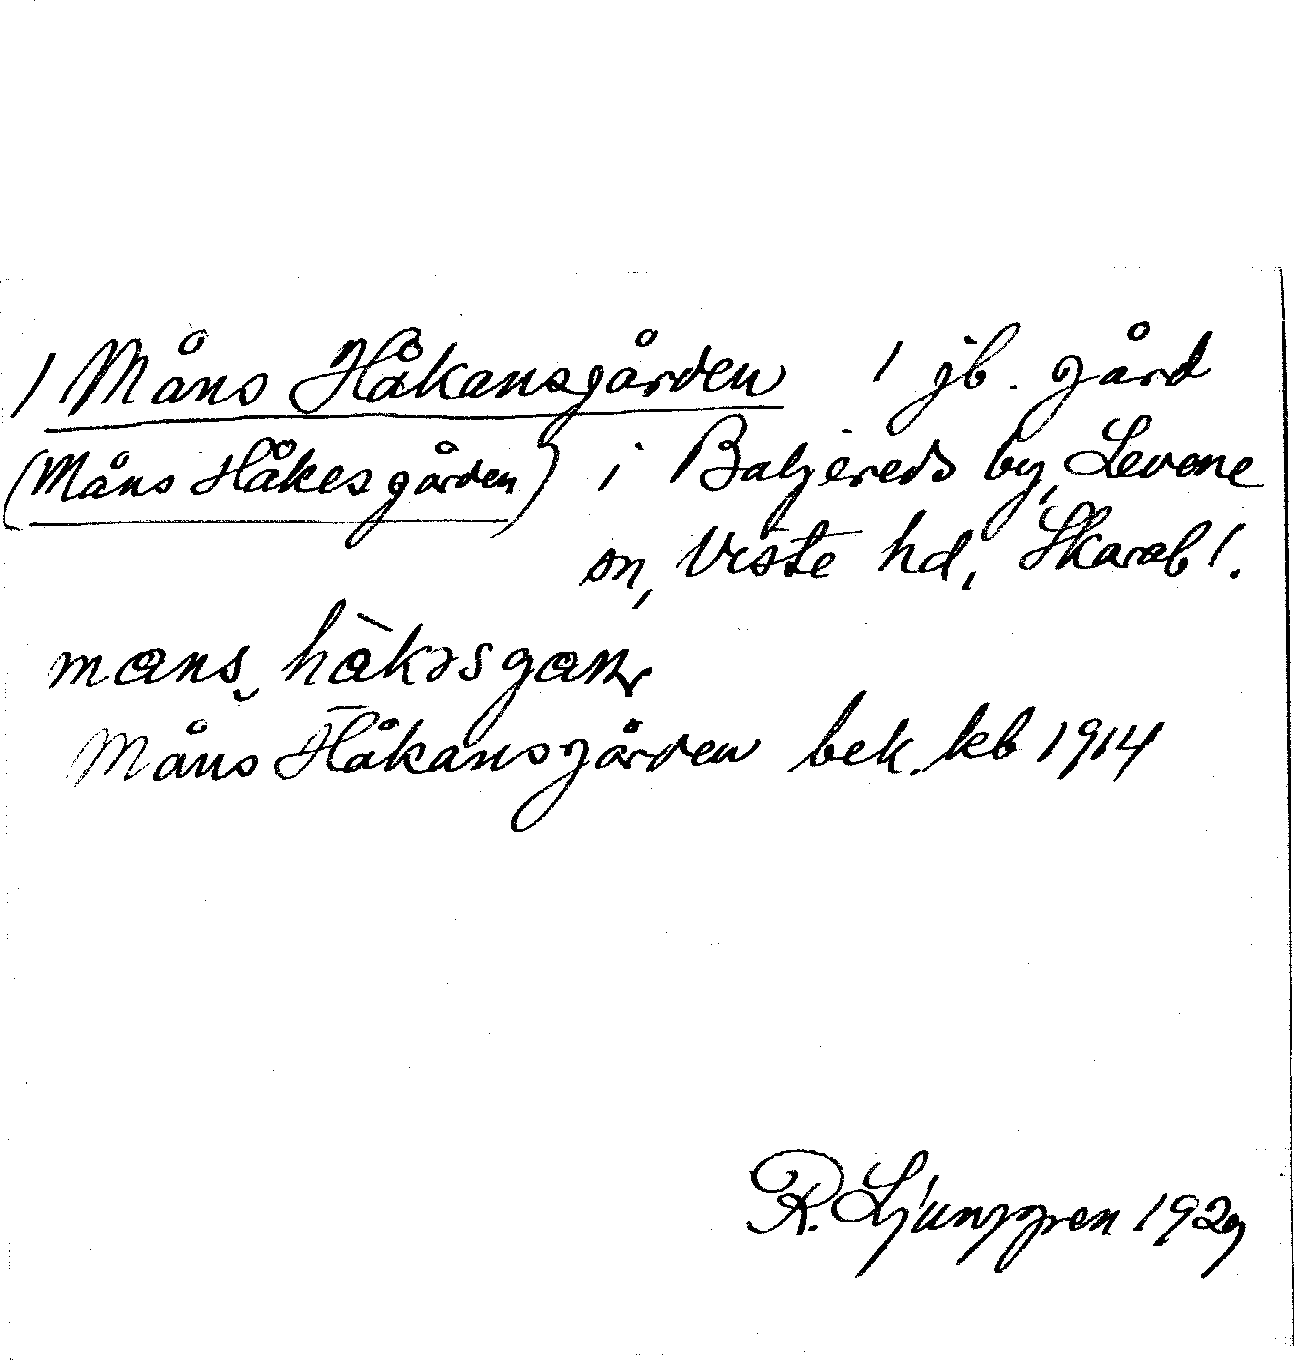 / Måns Håkansgården / jb. gård
(Måns Håkesgården) i Baljereds by, Levene
sn, Viste hd, Skarabl.
Måns Håkansgården bek. kb 1914
R. Ljunggren 1929